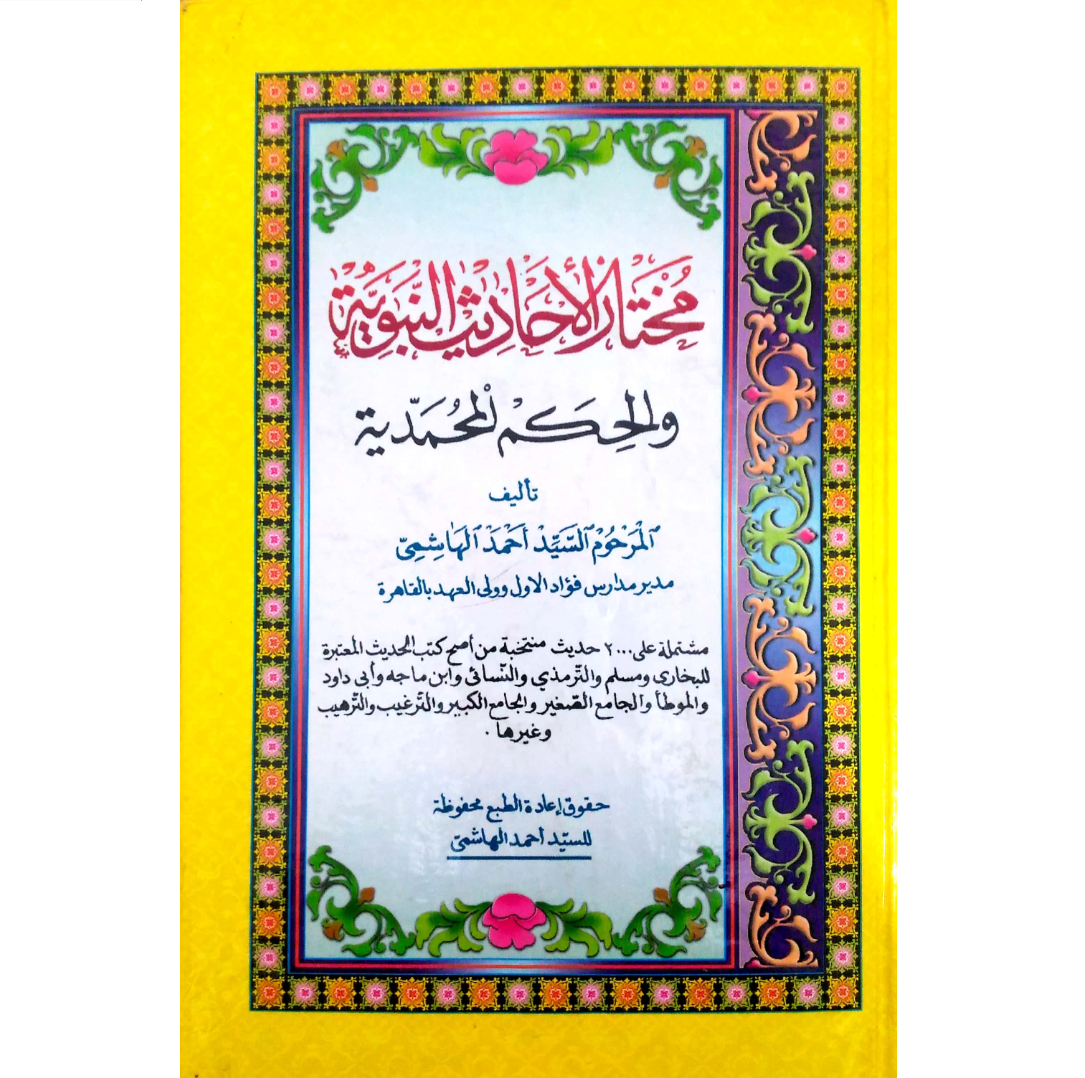 مُختار الأحاديث النبوية
والحِكَم المُحمّدية
تأليف
المَرْحُوم السَّيِّد أحمَد الهَاشِمِىّ
مدير مدارس فؤاد الاول وولى العهد بالقاهرة
مشتملة على ٢٠٠٠ حديث منتخبة من أصح كتب الحديث المعتبرة
للبخارى ومسلم والتّرمذي والنّسائى وابن ماجه وأبى داود
والموطأ والجامع الصّغير والجامع الكبير والتّرغيب والتّرهيب
وغيرها .
حقوق إعادة الطبع محفوظة
للسيّد أحمد الهاشمىّ